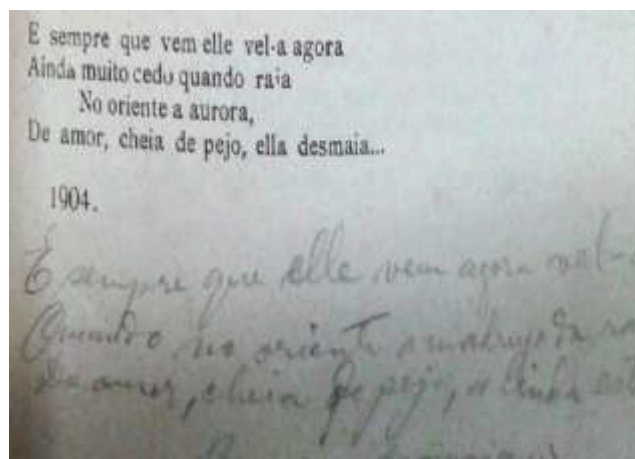 E sempre que vem elle vel-a agora
Ainda muito cedo quando raia
No oriente a aurora,
De amor, cheia de pejo, ella desmaia...
1904.
E sempre que elle vem agora vel-
Quando no oriente a madrugada ra
De amor, cheia de pejo, a linda